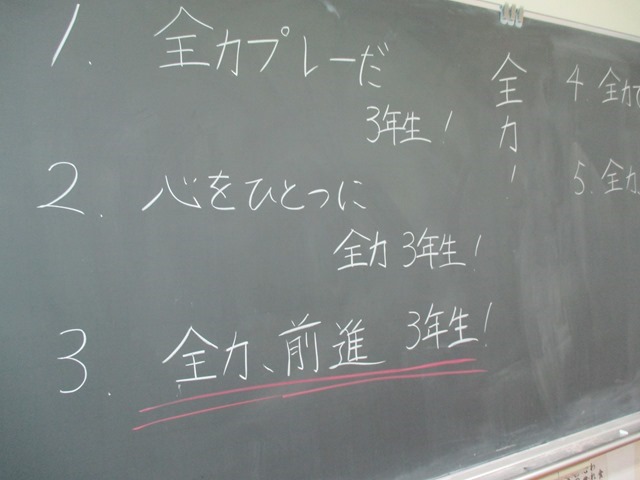 1. 全力プレーだ
3年生!
2. 心をひとつに
全力 3年生!
3. 全力、前進 3年生!
全力!
4. 全力で
5. 全力